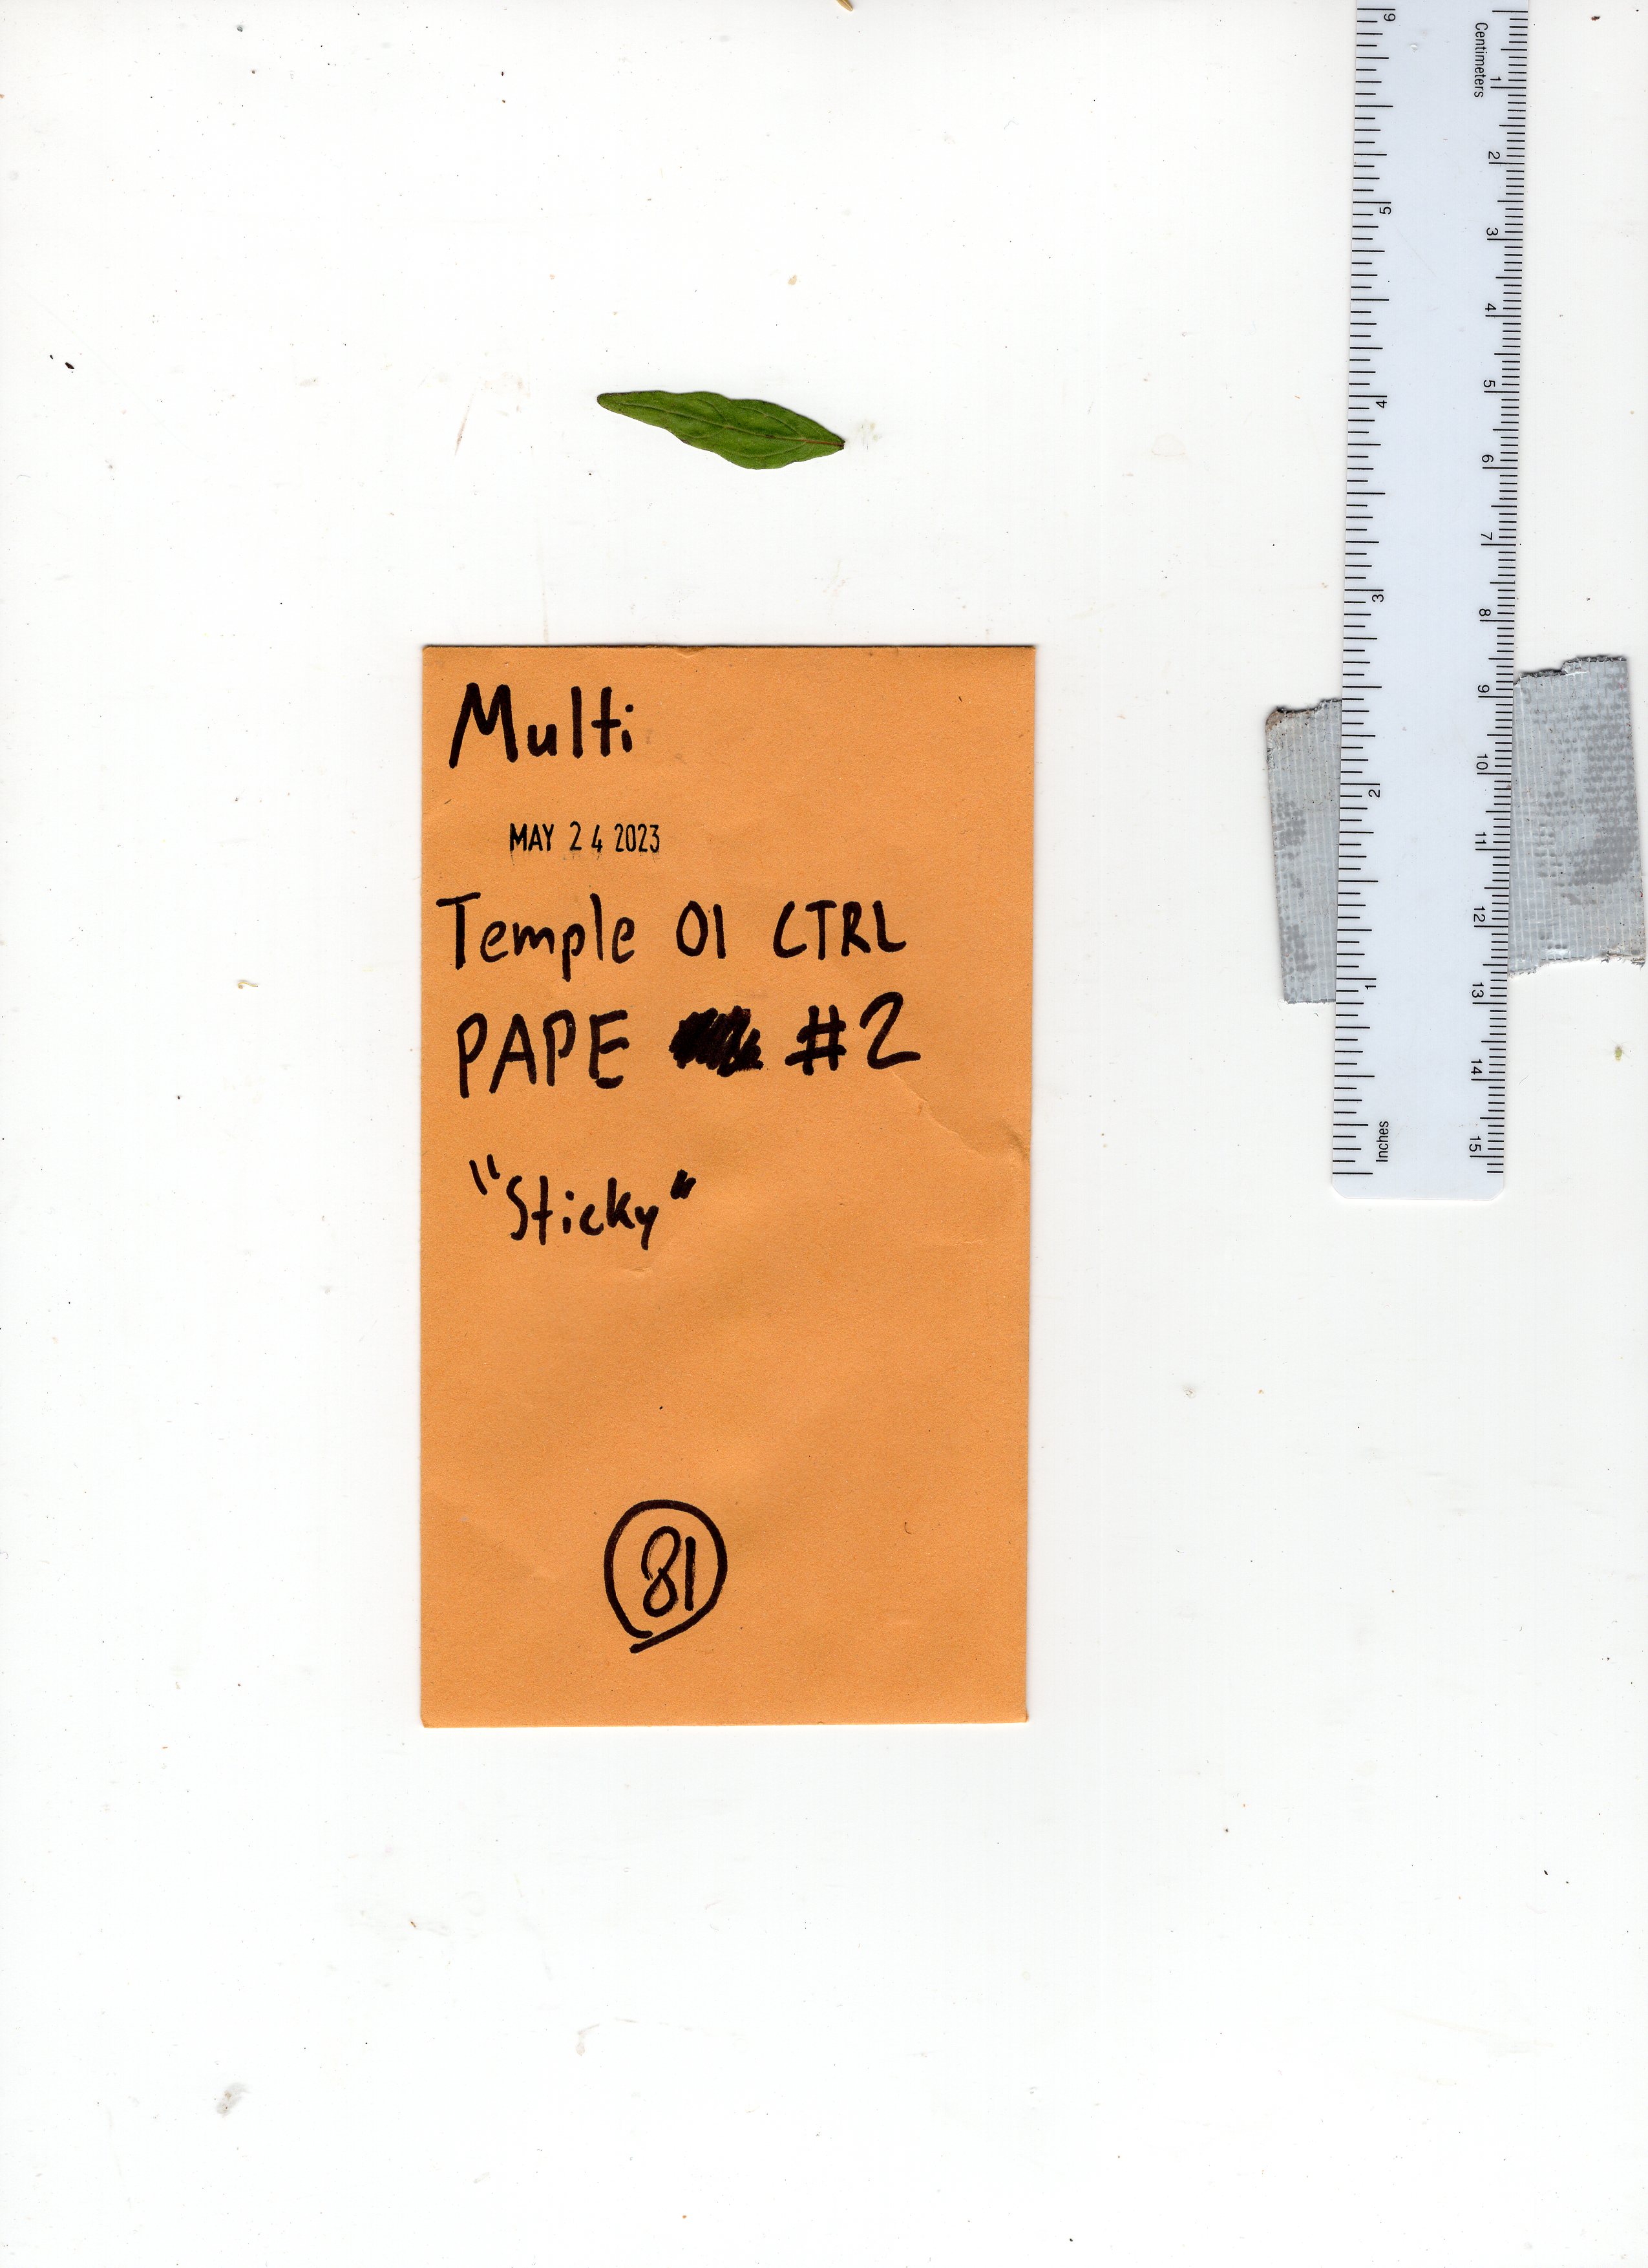 Multi
MAY 24 2023
Temple 01 CTRL
PAPE #2
"Sticky"
81
Centimeters
1 2 3 4 5 6 7 8 9 10 11 12 13 14 15
6 5 4 3 2 1
Inches